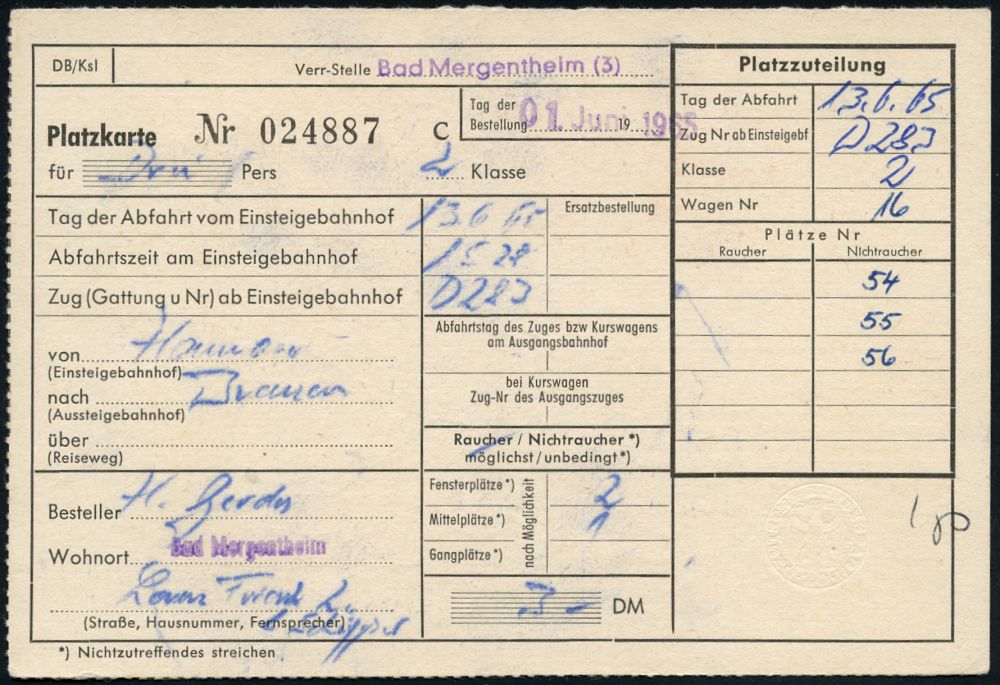 DB/Ksl
Verr-Stelle Bad Mergentheim (3)
Platzkarte Nr 024887 C
Tag der Bestellung 01. Juni 19 1965
für Drei Pers
2 Klasse
Tag der Abfahrt vom Einsteigebahnhof 13.6.65
Ersatzbestellung
Abfahrtszeit am Einsteigebahnhof 15 28
Zug (Gattung u Nr) ab Einsteigebahnhof D283
von
(Einsteigebahnhof)
nach Bremen
(Aussteigebahnhof)
über
(Reiseweg)
Abfahrtstag des Zuges bzw Kurswagens
am Ausgangsbahnhof
bei Kurswagen
Zug-Nr des Ausgangszuges
Raucher / Nichtraucher *)
möglichst / unbedingt *)
Besteller H. Gerdes
Wohnort Bad Mergentheim
(Straße, Hausnummer, Fernsprecher)
Fensterplätze *) 2
Mittelplätze *) 1
Gangplätze *)
nach Möglichkeit
3.- DM
*) Nichtzutreffendes streichen
Platzzuteilung
Tag der Abfahrt 13.6.65
Zug Nr ab Einsteigebf D283
Klasse 2
Wagen Nr 16
Plätze Nr
Raucher Nichtraucher
54
55
56